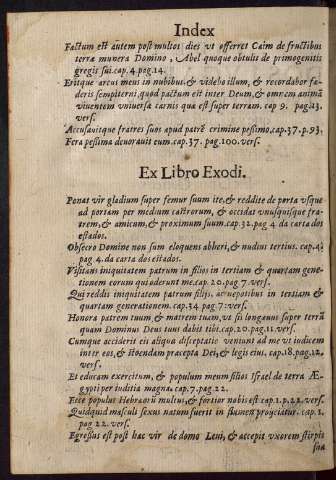 Index
Factum est autem post multos dies vt offerret Caim de fructibus
terræ munera Domino, Abel quoque obtulis de primogenitis
gregis sui. cap. 4. pag. 14.
Eritque arcus meus in nubibus, & videbo illum, & recordabor fæ-
deris sempiterni, quod pactum est inter Deum, & omnem animã
viuentem vniuersæ carnis quæ est super terram. cap 9. pag. 13.
vers.
Accusauitque fratres suos apud patrẽ crimine pessimo, cap. 37. p. 93.
Fera pessima deuorauit eum. cap. 37. pag. 100. vers.
Ex Libro Exodi.
Ponat vir gladium super femur suum ite, & reddite de porta vsque
ad portam per medium castrorum, & occidat vnusquisque fra-
trem, & amicum, & proximum suum. cap. 32. pag 4 da carta dos
estados.
Obsecro Domine non sum eloquens abheri, & nudius tertius. cap. 4.
pag. 4. da carta dos estados.
Visitans iniquitatem patrum in filios in tertiam & quartam gene-
tionem eorum qui oderunt me. cap. 20. pag 7. vers.
Qui reddis iniquitatem patrum filijs, ac nepotibus in tertiam &
quartam generationem. cap. 34. pag. 7. vers.
Honora patrem tuum, & matrem tuam, vt sis longæuus super terrã
quam Dominus Deus tuus dabit tibi. cap. 20. pag. 11. vers.
Cumque acciderit eis aliqua disceptatio veniunt ad me vt iudicem
inter eos, & ostendam præcepta Dei, & legis eius. cap. 18. pag. 12.
vers.
Et educam exercitum, & populum meum filios Israel de terra Æ-
gypti per iuditia magna. cap. 7. pag. 22.
Ecce populus Hebraorũ multus, & fortior nobis est cap. 1. p. 22. vers.
Quidquid masculi sexus natum fuerit in flumen proyciatur. cap. 1.
pag. 22. vers.
Egressus est post hæc vir de domo Leui, & accepis vxorem stirpis
suæ